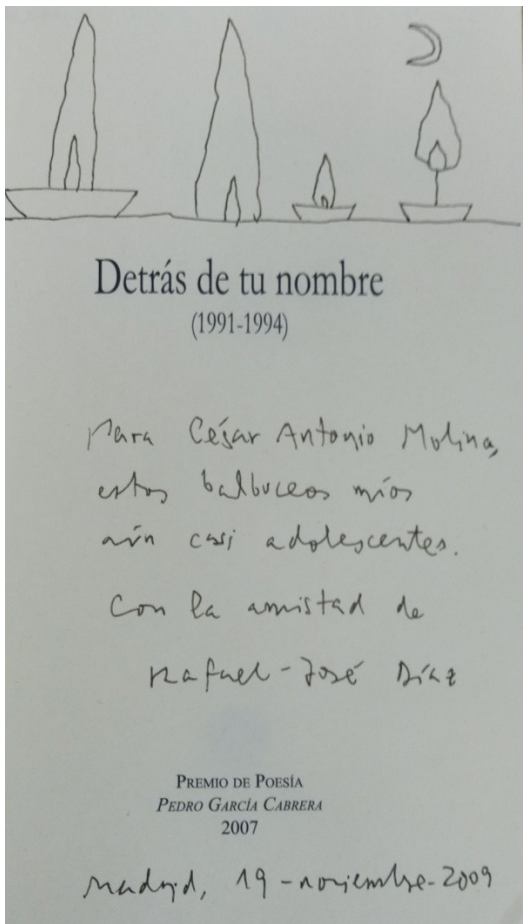 Detrás de tu nombre
(1991-1994)
Para César Antonio Molina,
estos balbuceos míos
aún casi adolescentes.
Con la amistad de
Rafael-José Díaz
PREMIO DE POESÍA
PEDRO GARCÍA CABRERA
2007
Madrid, 19-noviembre-2009